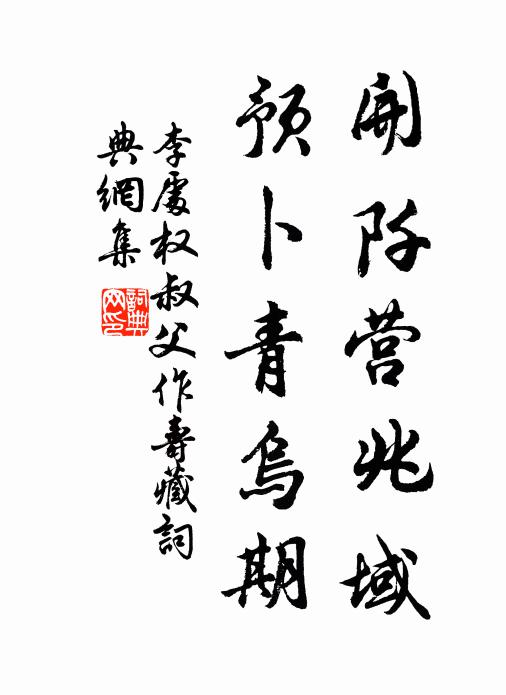 開阡營兆域
預卜青烏期
李處权叔父作壽藏詞
典網集
詞典網印